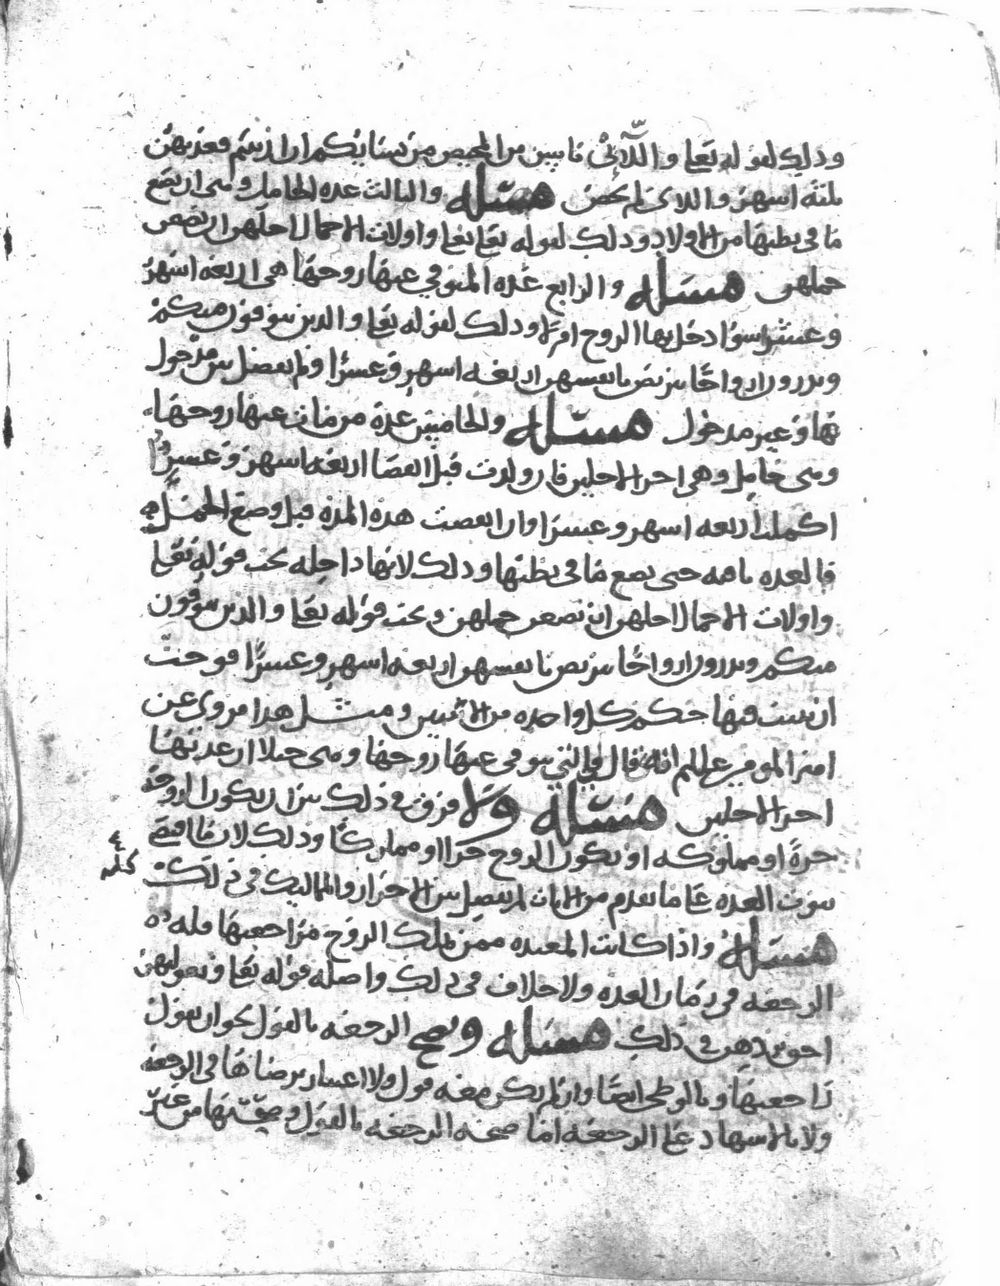 وذلك لقوله تعالى واللآئي يئسن من المحيض من نسائكم ان ارتبتم فعدتهن
ثلثة اشهر واللائي لم يحضن مسئله والثالث عدة الحامل وهي ان تضع
ما في بطنها من الاولاد وذلك لقوله تعالى واولات الاحمال اجلهن ان يضعن
حملهن مسئله والرابع عدة المتوفي عنها زوجها هي اربعه اشهر
وعشرا سوا دخل بها الزوج ام لا وذلك لقوله تعالى والذين يتوفون منكم
ويذرون ازواجا يتربصن بانفسهن اربعه اشهر وعشرا ولم يفصل بين مدخول
بها وغير مدخول مسئله والخامس عدة من مات عنها زوجها
وهي حامل وهي اخر الاجلين فان ولدت قبل انقضا اربعه اشهر وعشرا
اكملت اربعه اشهر وعشرا وان انقضت هذه المدة قبل وضع الحمل
فالعده باقيه حتى تضع ما في بطنها وذلك لانها داخله تحت قوله تعالى
واولات الاحمال اجلهن ان يضعن حملهن وتحت قوله تعالى والذين يتوفون
منكم ويذرون ازواجا يتربصن بانفسهن اربعه اشهر وعشرا فوجب
ان يثبت فيها حكم كل واحده من الايتين ومثل هذا مروي عن
امير المومنين علي انه قال في التي يتوفى عنها زوجها وهي حبلا ان عدتها
اخر الاجلين مسئله ولا فرق في ذلك بين ان يكون الزوجه
حرة او مملوكه او يكون الزوج حرا او مملوكا وذلك لان ما اقتضى
ثبوت العده على ما تقدم من الايات لم يفصل بين الاحرار والمماليك في ذلك
مسئله واذا كانت المعتده ممن يملك الزوج مراجعتها فله
الرجعه في زمان العده ولا خلاف في ذلك واصله قوله تعالى وبعولتهن
احق بردهن في ذلك مسئله وتصح الرجعه بالقول نحو ان يقول
راجعتها وبالوطي ايضا وان لم يكن معه قول ولا اعتبار برضاها في الرجعه
ولا بالاشهاد على الرجعه اما صحة الرجعه بالقول وصحتها من غير